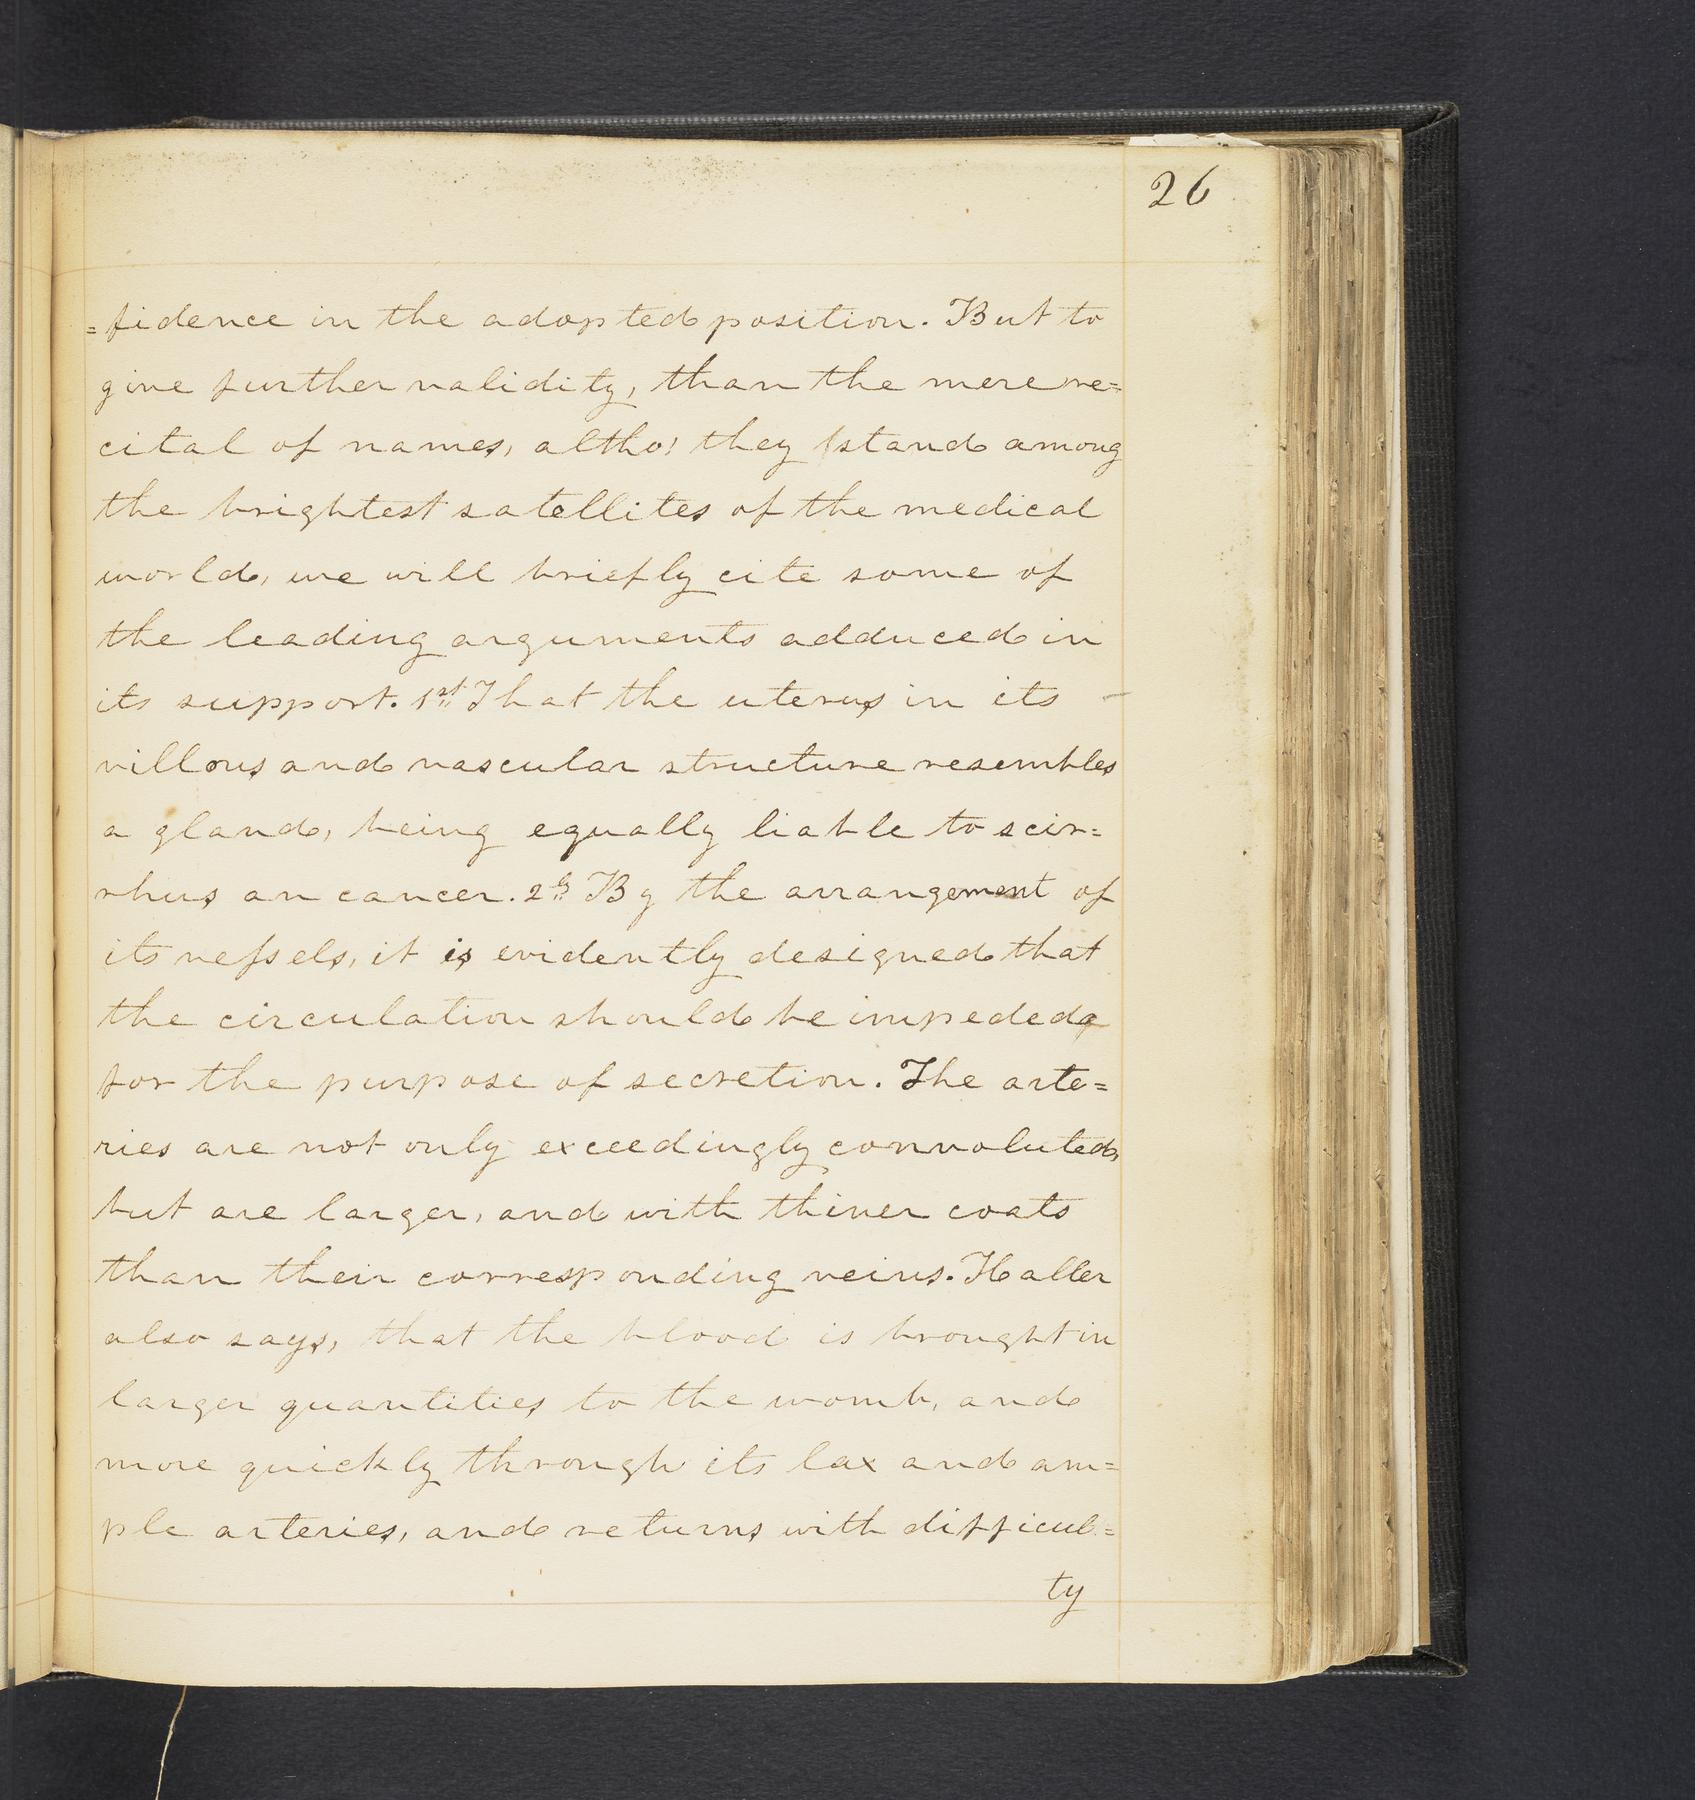 26
=fidence in the adopted position. But to
give further validity, than the mere re=
cital of names, altho' they stand among
the brightest satellites of the medical
world, we will briefly cite some of
the leading arguments adduced in
its support. 1st That the uterus in its
villous and vascular structure resembles
a gland, being equally liable to scir=
rhus an cancer. 2d By the arrangement of
its vessels, it is evidently designed that
the circulation should be impeded
for the purpose of secretion. The arte=
ries are not only exceedingly convoluted,
but are larger, and with thiner coats
than their corresponding veins. Haller
also says, that the blood is brought in
larger quantities to the womb, and
more quickly through its lax and am=
ple arteries, and returns with difficul=
ty